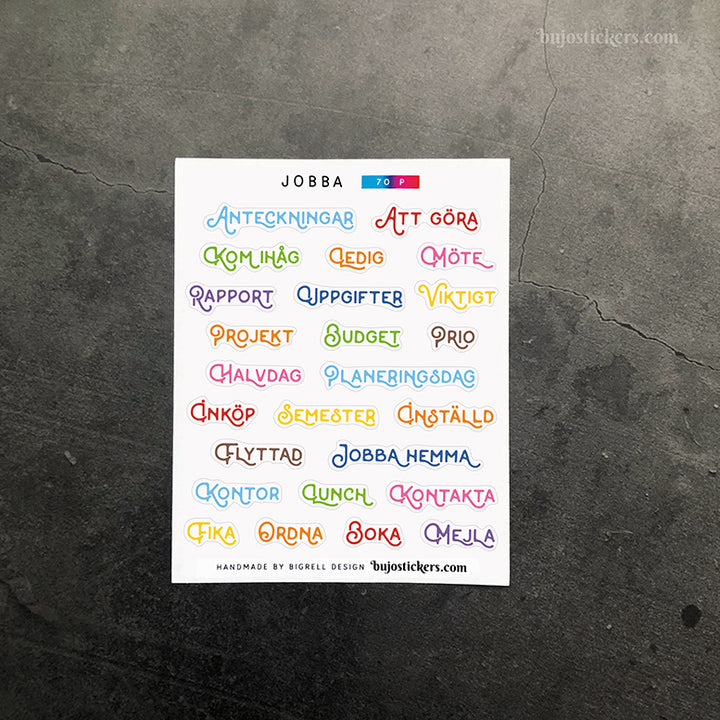 bujostickers.com
JOBBA 70 P
Anteckningar Att göra
Kom ihåg Ledig Möte
Rapport Uppgifter Viktigt
Projekt Budget Prio
Halvdag Planeringsdag
Inköp Semester Inställd
Flyttad Jobba hemma
Kontor Lunch Kontakta
Fika Ordna Boka Mejla
HANDMADE BY BIGRELL DESIGN bujostickers.com